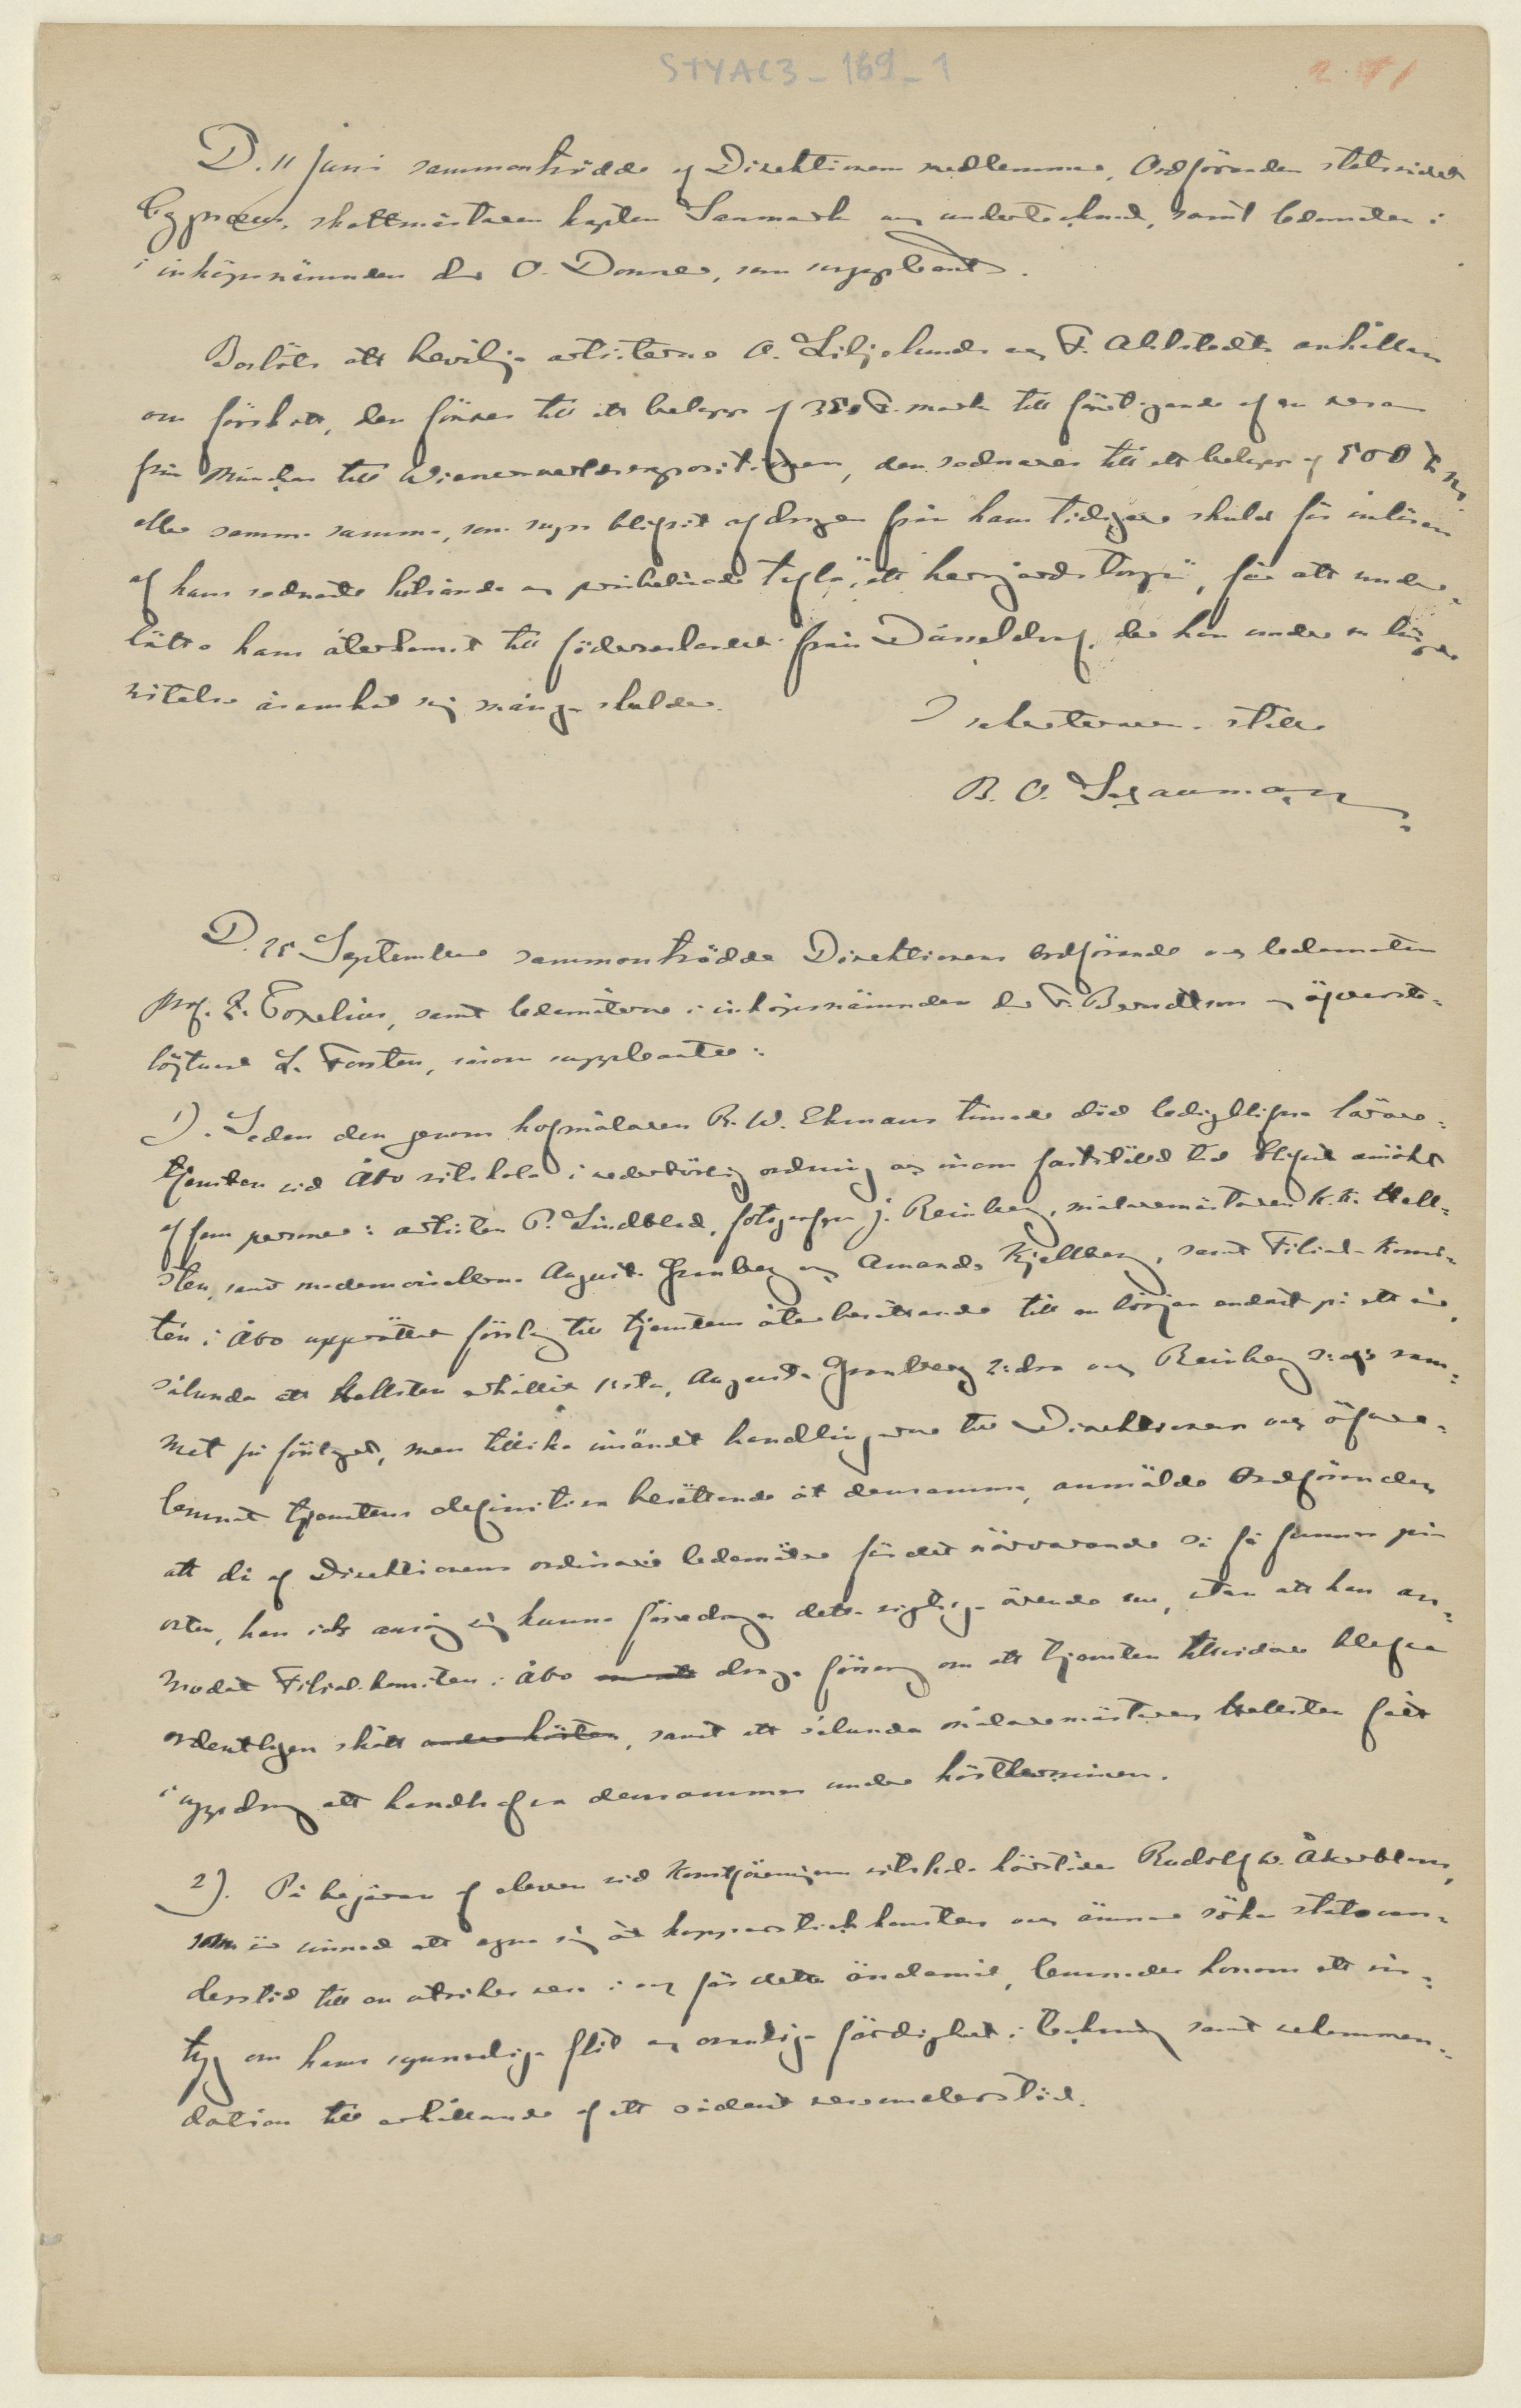 STYAC3_169_1
D. 11 Juni sammanträdde af Direktionens medlemmar, Ordföranden statsrådet
Cygnæus, skattmästaren kapten Sanmark och undertecknad, samt ledamoten i
inköpsnämnden dr O. Donner, som suppleant.
Beslöts att bevilja artisterne A. Liljelunds och F. Ahlstedts anhållan
om förskott, den förres till ett belopp af 350 F. mark till företagande af en resa
från München till Wienerverldsexpositionen, den sednares till ett belopp af 500 F m.
eller samma summa, som nyss blifvit afdragen från hans tidigare skuld för inlösen
af hans sednaste hitsända och prisbelönade tafla, "ett herrgårdstorp", för att under-
lätta hans återkomst till fäderneslandet från Düsseldorf, der han under en längre
vistelse åsamkat sig många skulder.
I sekreterarens ställe
B. O. Schauman
D. 25 September sammanträdde Direktionens Ordförande och ledamoten
Prof. Z. Topelius, samt ledamöterne i inköpsnämnden dr F. Berndtson och öfverste-
löjtnant L. Forsten, såsom suppleanter:
1). Sedan den genom hofmålaren R. W. Ekmans timade död lediga lärare-
tjensten vid Åbo ritskola i vederbörlig ordning och inom fastställd tid blifvit ansökt
af fem personer: artisten P. Lindblad, fotografen J. Reinberg, målaremästaren K. K. Hell-
sten, samt mademoisellerna Augusta Granberg och Amanda Kjellberg, samt Filial-Komi-
tén i Åbo upprättat förslag till tjenstens återbesättande till en början endast på ett år,
sålunda att Hellsten erhållit 1:sta, Augusta Granberg 2:dra och Reinberg 3:dje rum-
met på förslaget, men tillika insändt handlingarne till Direktionen och öfver-
lemnat tjenstens definitiva besättande åt densamma, anmälde Ordföranden
att då af Direktionens ordinarie ledamöter för det närvarande så få funnos på
orten, han icke ansåg sig kunna föredraga detta vigtiga ärende nu, utan att han an-
modat Filial-komitén i Åbo draga försorg om att tjensten tillsvidare blefve
ordentligen skött under hösten, samt att sålunda målaremästaren Hellsten fått
i uppdrag att handhafva densamma under höstterminen.
2). På begäran af eleven vid Konstföreningens ritskola härstädes Rudolf W. Åkerblom,
som är sinnad att egna sig åt kopparstickkonsten och ämnar söka statsun-
derstöd till en utrikes resa i och för detta ändamål, lemnades honom ett in-
tyg om hans synnerliga flit och ovanliga färdighet i teckning samt rekommen-
dation till erhållande af ett sådant reseunderstöd.